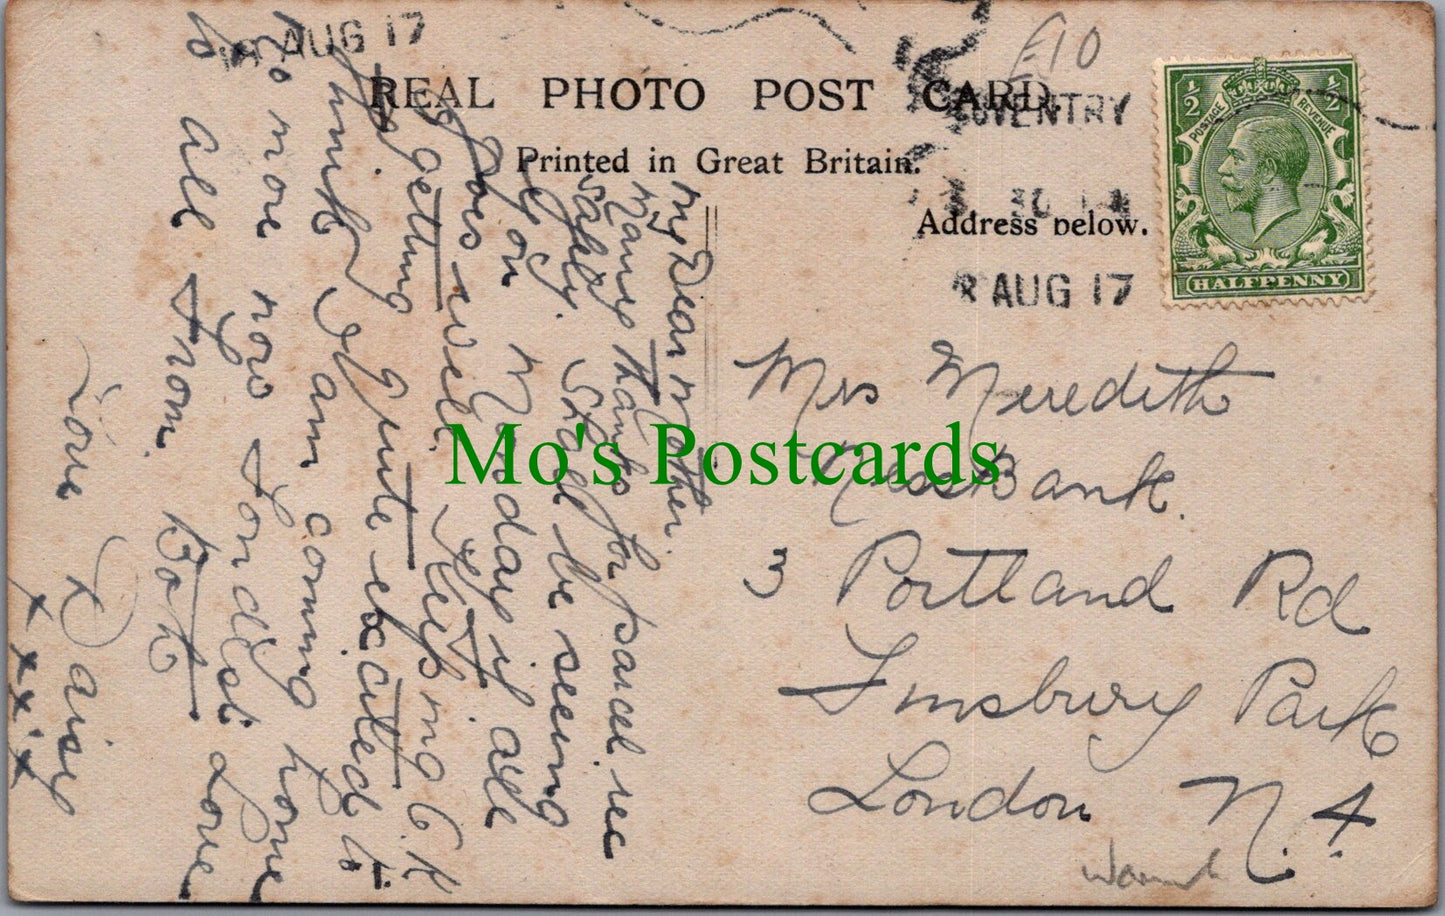 AUG 17
REAL PHOTO POST CARD.
Printed in Great Britain.
Address below.
£10
COVENTRY
30
8 AUG 17
½ ½
POSTAGE REVENUE
HALFPENNY
Mrs Meredith
Ness Bank.
3 Portland Rd
Finsbury Park
London N. 4.
My Dear Mother.
Many thanks for parcel rec
safely. Shall be seeing
you Thursday if all
goes well. Keeping O.K
getting quite excited to
think I am coming home
no more now Fondest Love
to all from Both
Love Daisy
x x x x x
Mo's Postcards